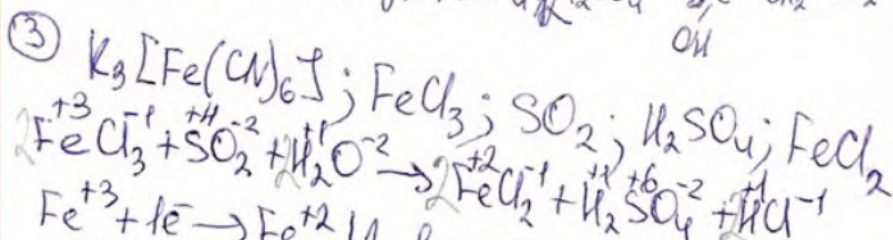 OH
③ K₃[Fe(CN)₆]; FeCl₃; SO₂; H₂SO₄; FeCl₂
2Fe⁺³Cl₃⁻¹ + S⁺⁴O₂⁻² + 2H₂⁺¹O⁻² → 2Fe⁺²Cl₂⁻¹ + H₂⁺¹S⁺⁶O₄⁻² + 2H⁺¹Cl⁻¹
Fe⁺³ + 1ē → Fe⁺²